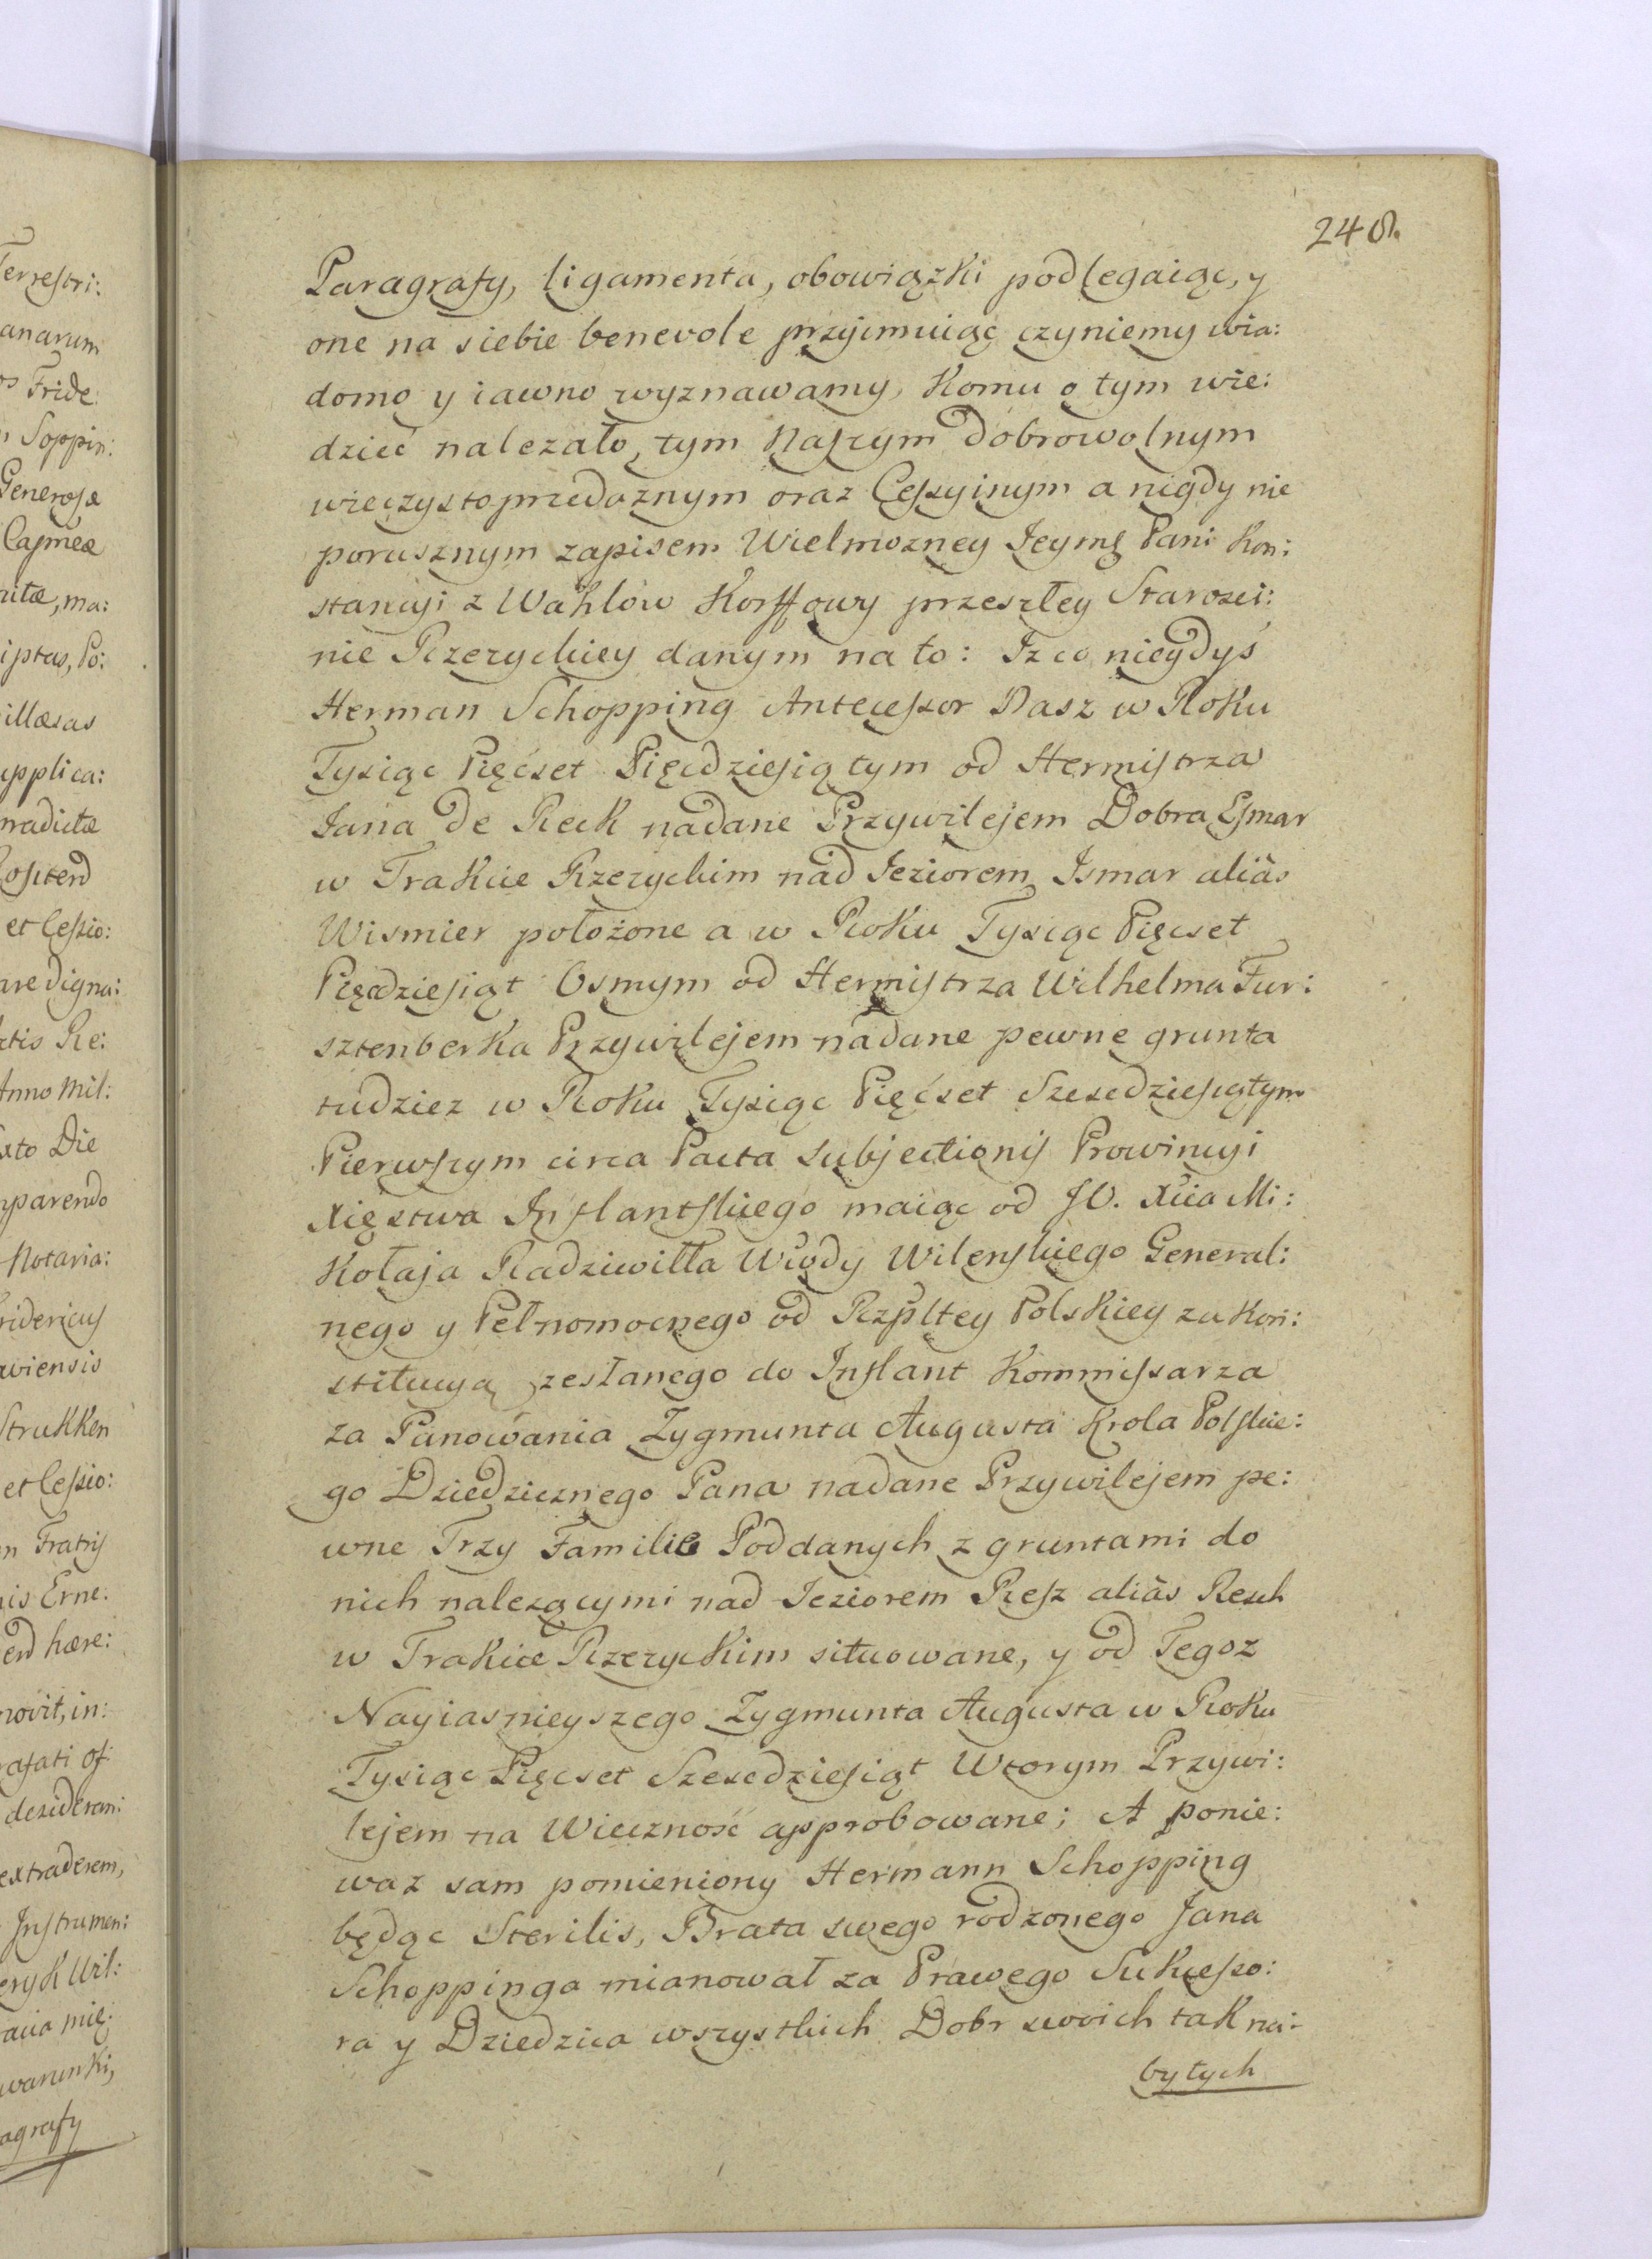 248.
Paragrafy, ligamenta, obowiązki podlegaiąc, y
one na siebie benevole przyimuiąc czyniemy wia:
domo y iawno wyznawamy, Komu o tym wie:
dzieć nalezało, tym Naszym dobrowolnym
wieczystoprzedaznym oraz Cessyinym a nigdy nie
porusznym zapisem Wielmozney Jeymę Pani Kon:
stancyi z Wahlów Korffowy przeszłey Starosci:
nie Rzezyckiey danym na to: Iz co niegdyś
Herman Schopping Antecessor Nasz w Roku
Tysiąc Pięćset Pięcdziesiątym od Hermistrza
Jana de Reck nadane Przywilejem Dobra Esmar
w Trakcie Rzezyckim nad Jeziorem Ismar aliàs
Wismier położone a w Roku Tysiąc Pięcset
Pięcdziesiąt Osmym od Hermistrza Wilhelma Fur:
sztenberka Przywilejem nadane pewne grunta
tudziez w Roku Tysiąc Pięćset Szescdziesiątym
Pierwszym circa Pacta Subjectionis Prowincyi
Xięstwa Inflantskiego maiąc od JO. Xcia Mi:
Kołaja Radziwiłła Wdy Wilenskiego General:
nego y Pełnomocnego od Rzpltey Polskiey za Kon:
stitucyą zesłanego do Inflant Kommissarza
za Panowania Zygmunta Augusta Krola Polskie:
go Dziedzicznego Pana nadane Przywilejem pe:
wne Trzy Familie Poddanych z gruntami do
nich nalezącymi nad Jeziorem Resz aliàs Resch
w Trakcie Rzezyckim situowane, y od Tegoz
Nayiasnieyszego Zygmunta Augusta w Roku
Tysiąc Pięcset Szescdziesiąt Wtorym Przywi:
lejem na Wieczność approbowane; A ponie:
waz sam pomieniony Hermann Schopping
będąc Sterilis, Brata swego rodzonego Jana
Schoppinga mianował za Prawego Sukcesso:
ra y Dziedzica wszystkich Dobr swoich tak na:
bytych